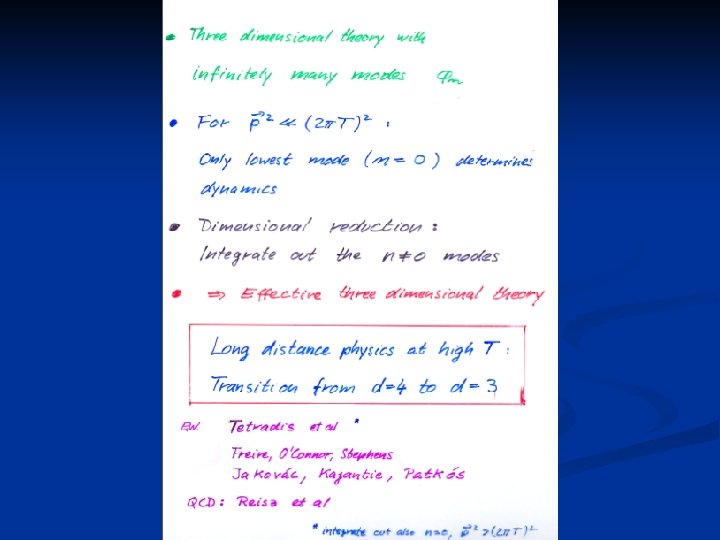 • Three dimensional theory with
infinitely many modes φₙ
• For p⃗² ≪ (2πT)² :
Only lowest mode (n = 0) determines
dynamics
• Dimensional reduction :
Integrate out the n ≠ 0 modes
• ⇒ Effective three dimensional theory
Long distance physics at high T :
Transition from d=4 to d=3
E.W. Tetradis et al *
Freire, O'Connor, Stephens
Jakovác, Kajantie, Patkós
QCD : Reisz et al
* integrate out also n=0, p⃗² > (2πT)²